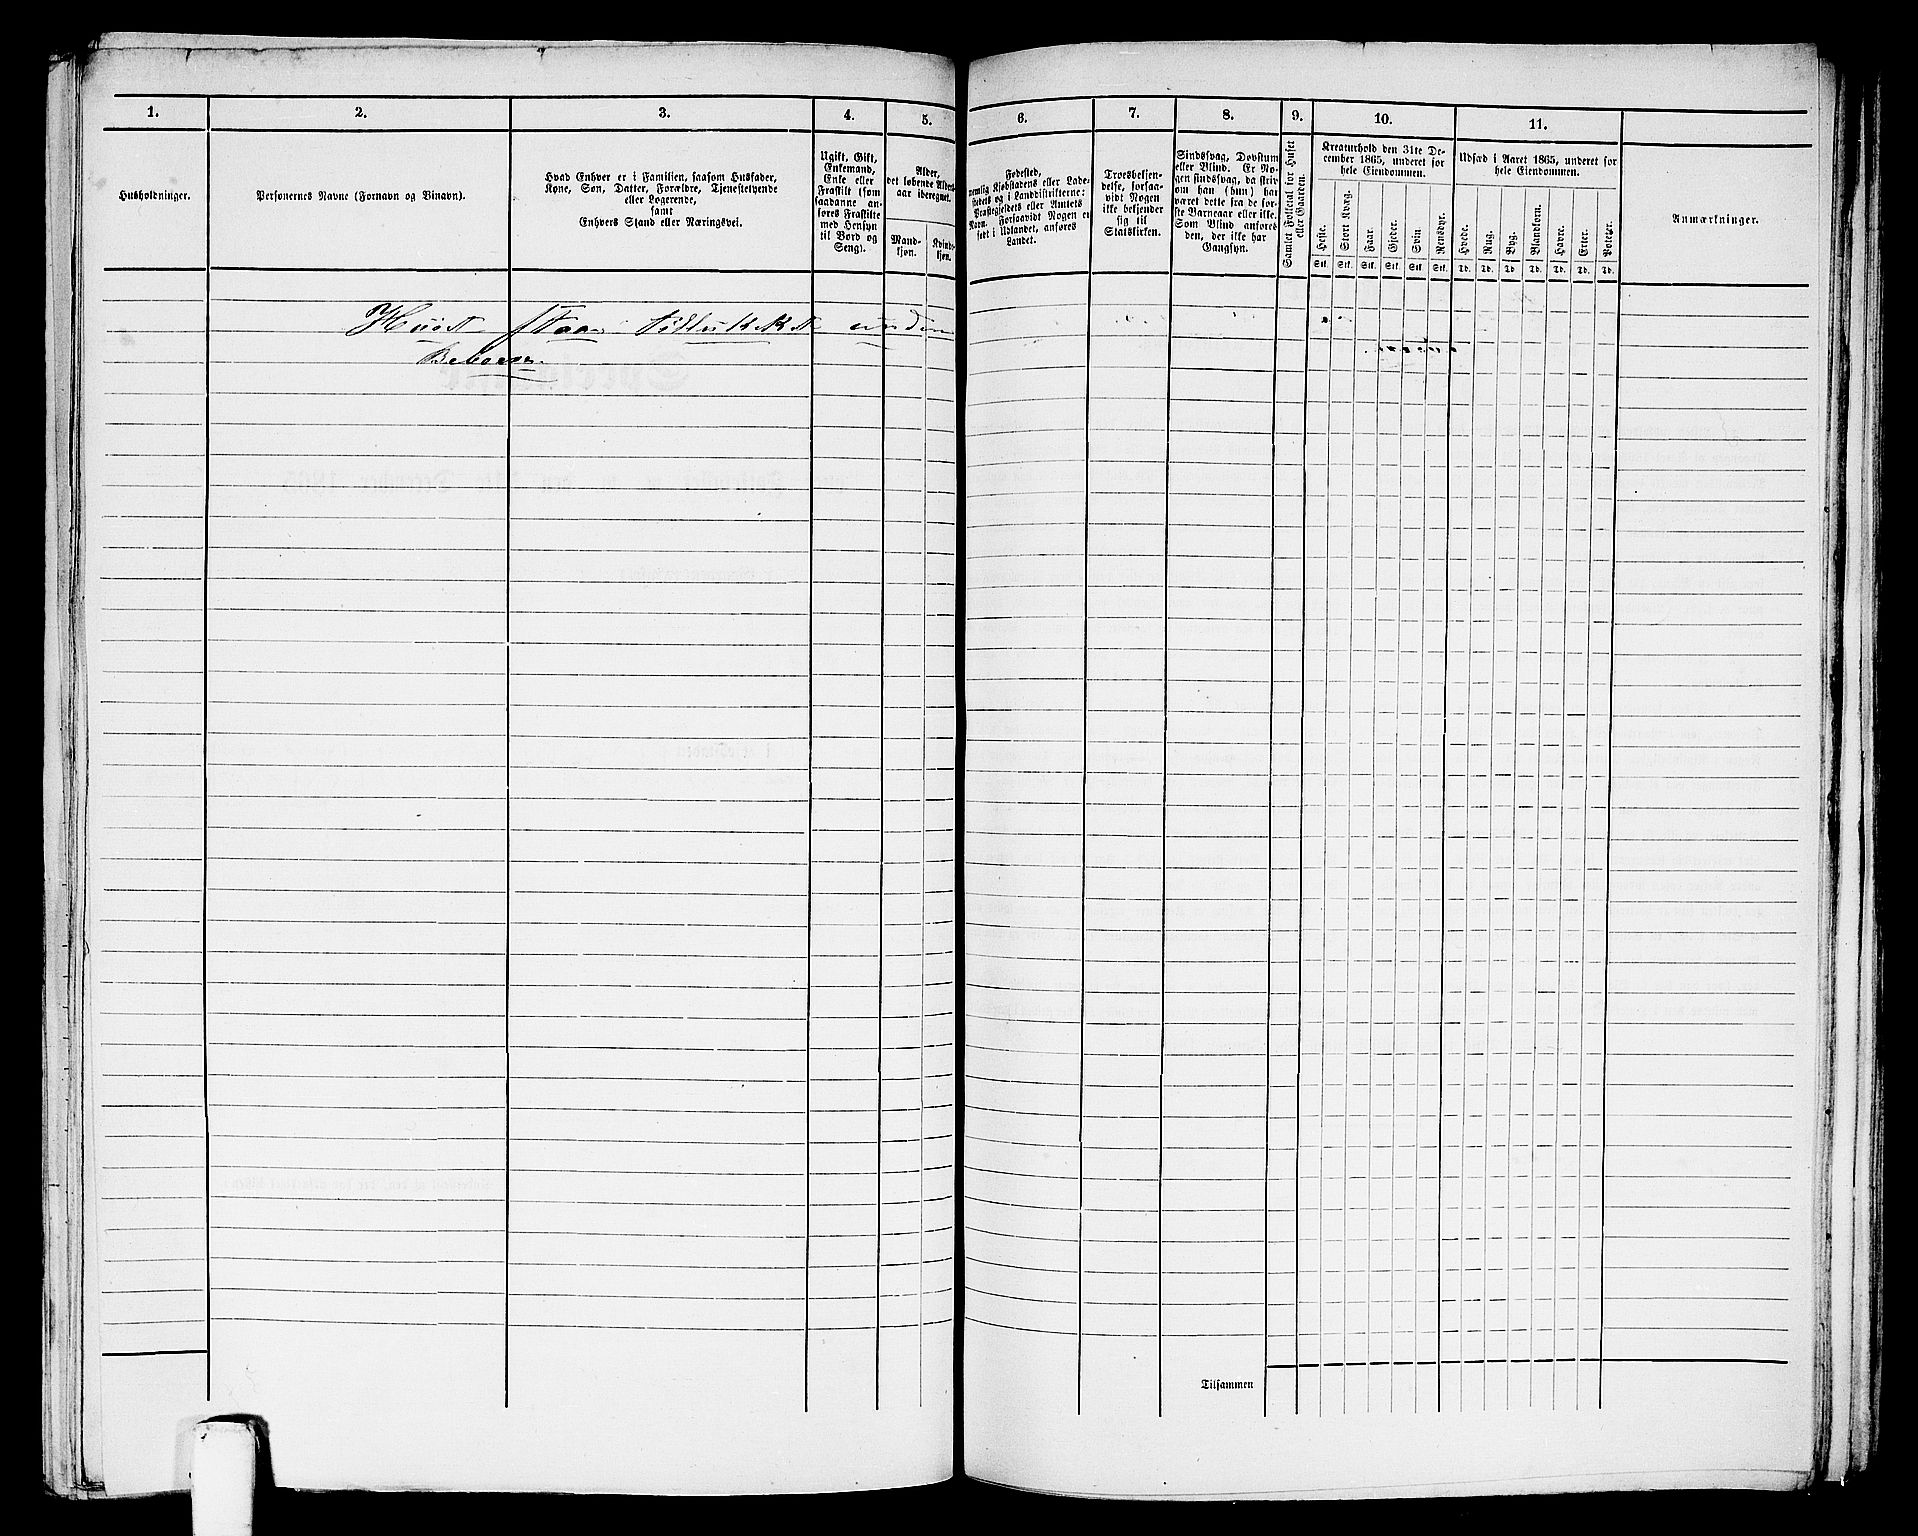 1.
2.
3.
4.
5.
6.
7.
8.
9.
10.
11.
Husholdninger.
Personernes Navne (Fornavn og Binavn).
Hvad Enhver er i Familien, saasom Husfader,
Kone, Søn, Datter, Forældre, Tjenestetyende
eller Logerende,
samt
Enhvers Stand eller Næringsvei.
Ugift, Gift,
Enkemand,
Enke eller
Fraskilt (som
saadanne an-
føres Fraskilte
med Hensyn
til Bord og
Seng).
Alder,
det løbende Alders-
aar iberegnet.
Mand-
kjøn.
Kvind-
kjøn.
Fødested,
nemlig Kjøbstadens eller Lade-
stedets og i Landdistrikterne:
Præstegjeldets eller Amtets
Navn. Forsaavidt Nogen er
født i Udlandet, anføres
Landet.
Troesbekjen-
delse, forsaa-
vidt Nogen
ikke bekjender
sig til
Statskirken.
Sindssvag, Døvstum
eller Blind. Er No-
gen sindssvag, da skriv
om han (hun) har
været dette fra de før-
ste Barneaar eller ikke.
Som Blind anføres
den, der ikke har
Gangsyn.
Samlet Folketal for Huset
eller Gaarden.
Kreaturhold den 31te De-
cember 1865, underet for
hele Eiendommen.
Heste.
Stort Kvæg.
Faar.
Gjeder.
Svin.
Rensdyr.
Stk.
Stk.
Stk.
Stk.
Stk.
Stk.
Udsæd i Aaret 1865, underet for
hele Eiendommen.
Hvede.
Rug.
Byg.
Blandkorn.
Havre.
Erter.
Poteter.
Td.
Td.
Td.
Td.
Td.
Td.
Td.
Anmærkninger.
Huset staar tillukket uden
Beboere.
Tilsammen